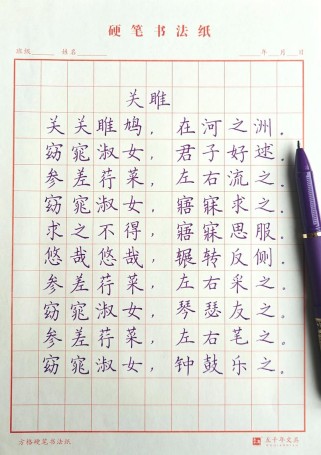 硬笔书法纸
班级 姓名 年 月 日
关雎
关关雎鸠，在河之洲。
窈窕淑女，君子好逑。
参差荇菜，左右流之。
窈窕淑女，寤寐求之。
求之不得，寤寐思服。
悠哉悠哉，辗转反侧。
参差荇菜，左右采之。
窈窕淑女，琴瑟友之。
参差荇菜，左右笔之。
窈窕淑女，钟鼓乐之。
方格硬笔书法纸